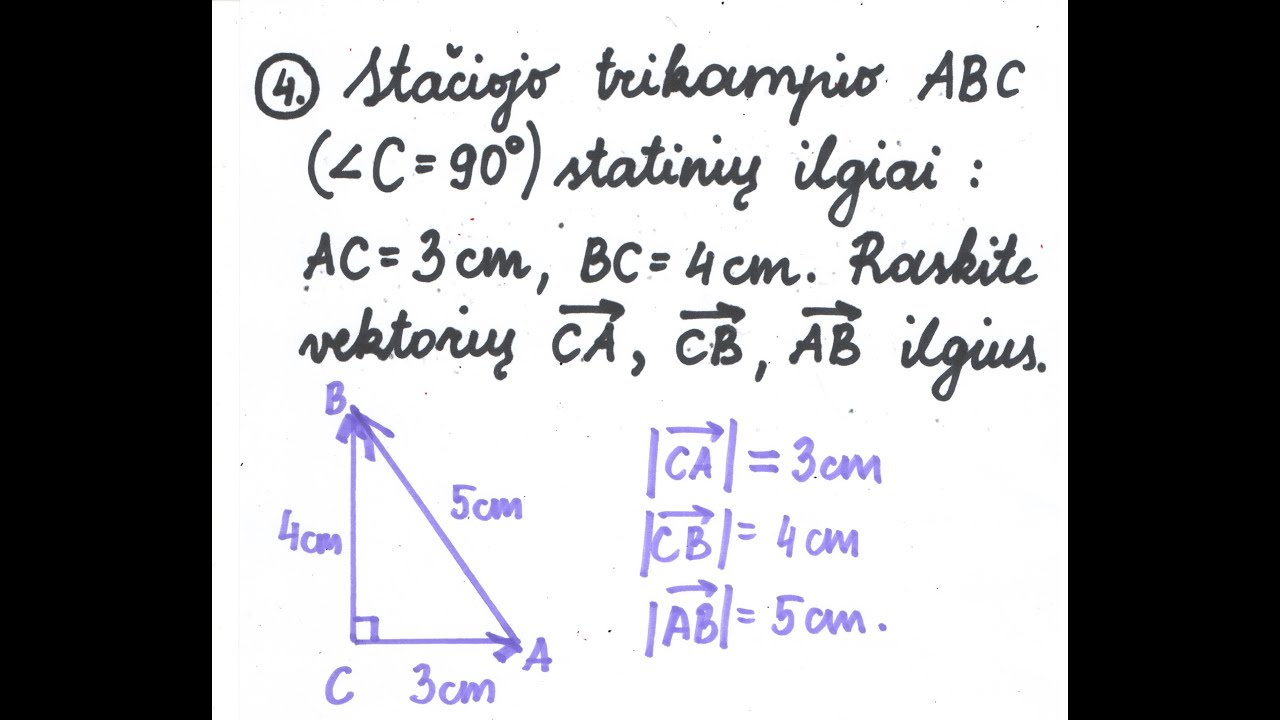 4. Stačiojo trikampio ABC
(∠C = 90°) statinių ilgiai :
AC = 3 cm, BC = 4 cm. Raskite
vektorių →CA, →CB, →AB ilgius.
B
|→CA| = 3 cm
5 cm
4 cm
|→CB| = 4 cm
|→AB| = 5 cm.
A
C 3 cm